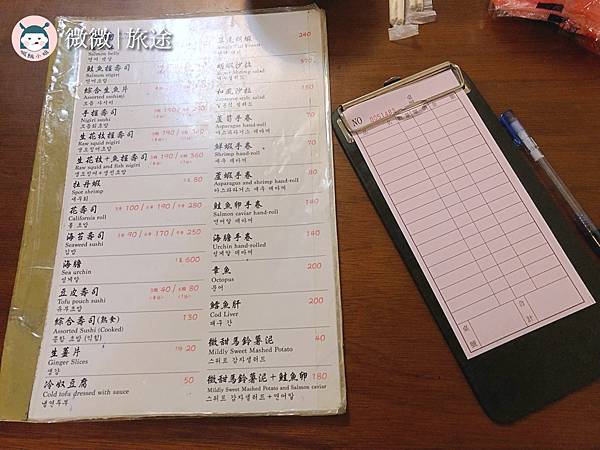 微微|旅途
Salmon belly
연어 뱃살
鮭魚握壽司
Salmon nigiri
연어초밥
綜合生魚片
Assorted sashimi
모듬 사시미
手握壽司
Nigiri sushi
모듬회초밥
生花枝握壽司
Raw squid nigiri
생오징어초밥
生花枝+魚握壽司 190 360
Raw squid and fish nigiri
생오징어+생선초밥
牡丹蝦 80
Spot shrimp
새우회
花壽司 100 190 280
California roll
롤 초밥
海苔壽司 90 170 250
Seaweed sushi
김밥
海膽 600
Sea urchin
성게알
豆皮壽司 40 80
Tofu pouch sushi
유부초밥
綜合壽司(熟食) 130
Assorted Sushi (Cooked)
종합 초밥 (익힘)
生薑片 20
Ginger Slices
생강
冷奴豆腐 50
Cold tofu dressed with sauce
냉연두부
240
蝦沙拉
和風沙拉
Japanese style salad
蘆筍手卷 70
Asparagus hand-roll
아스파라거스 데마끼
鮮蝦手卷 70
Shrimp hand-roll
새우 데마끼
蘆蝦手卷 80
Asparagus and shrimp hand-roll
아스파라거스 새우 데마끼
鮭魚卵手卷 140
Salmon caviar hand-roll
연어알 데마끼
海膽手卷 140
Urchin hand-rolled
성게알 데마끼
章魚 200
Octopus
문어
鱈魚肝 200
Cod Liver
대구 간
微甜馬鈴薯泥 40
Mildly Sweet Mashed Potato
스위트 감자샐러드
微甜馬鈴薯泥+鮭魚卵 180
Mildly Sweet Mashed Potato and Salmon caviar
스위트 감자샐러드+연어알
NO
桌號
合計